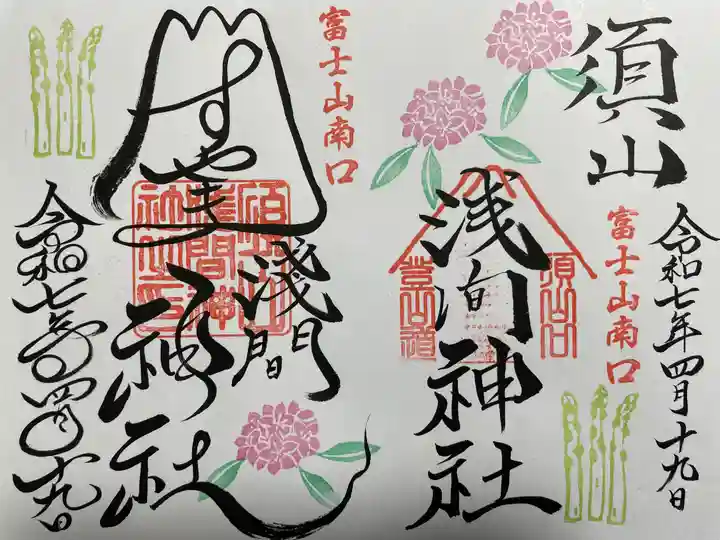 須山
浅間神社
富士山南口
令和七年四月十九日
須山口
登山道
富士山南口
すやま
淺間
神社
須山浅間神社之印
令和七年四月十九日